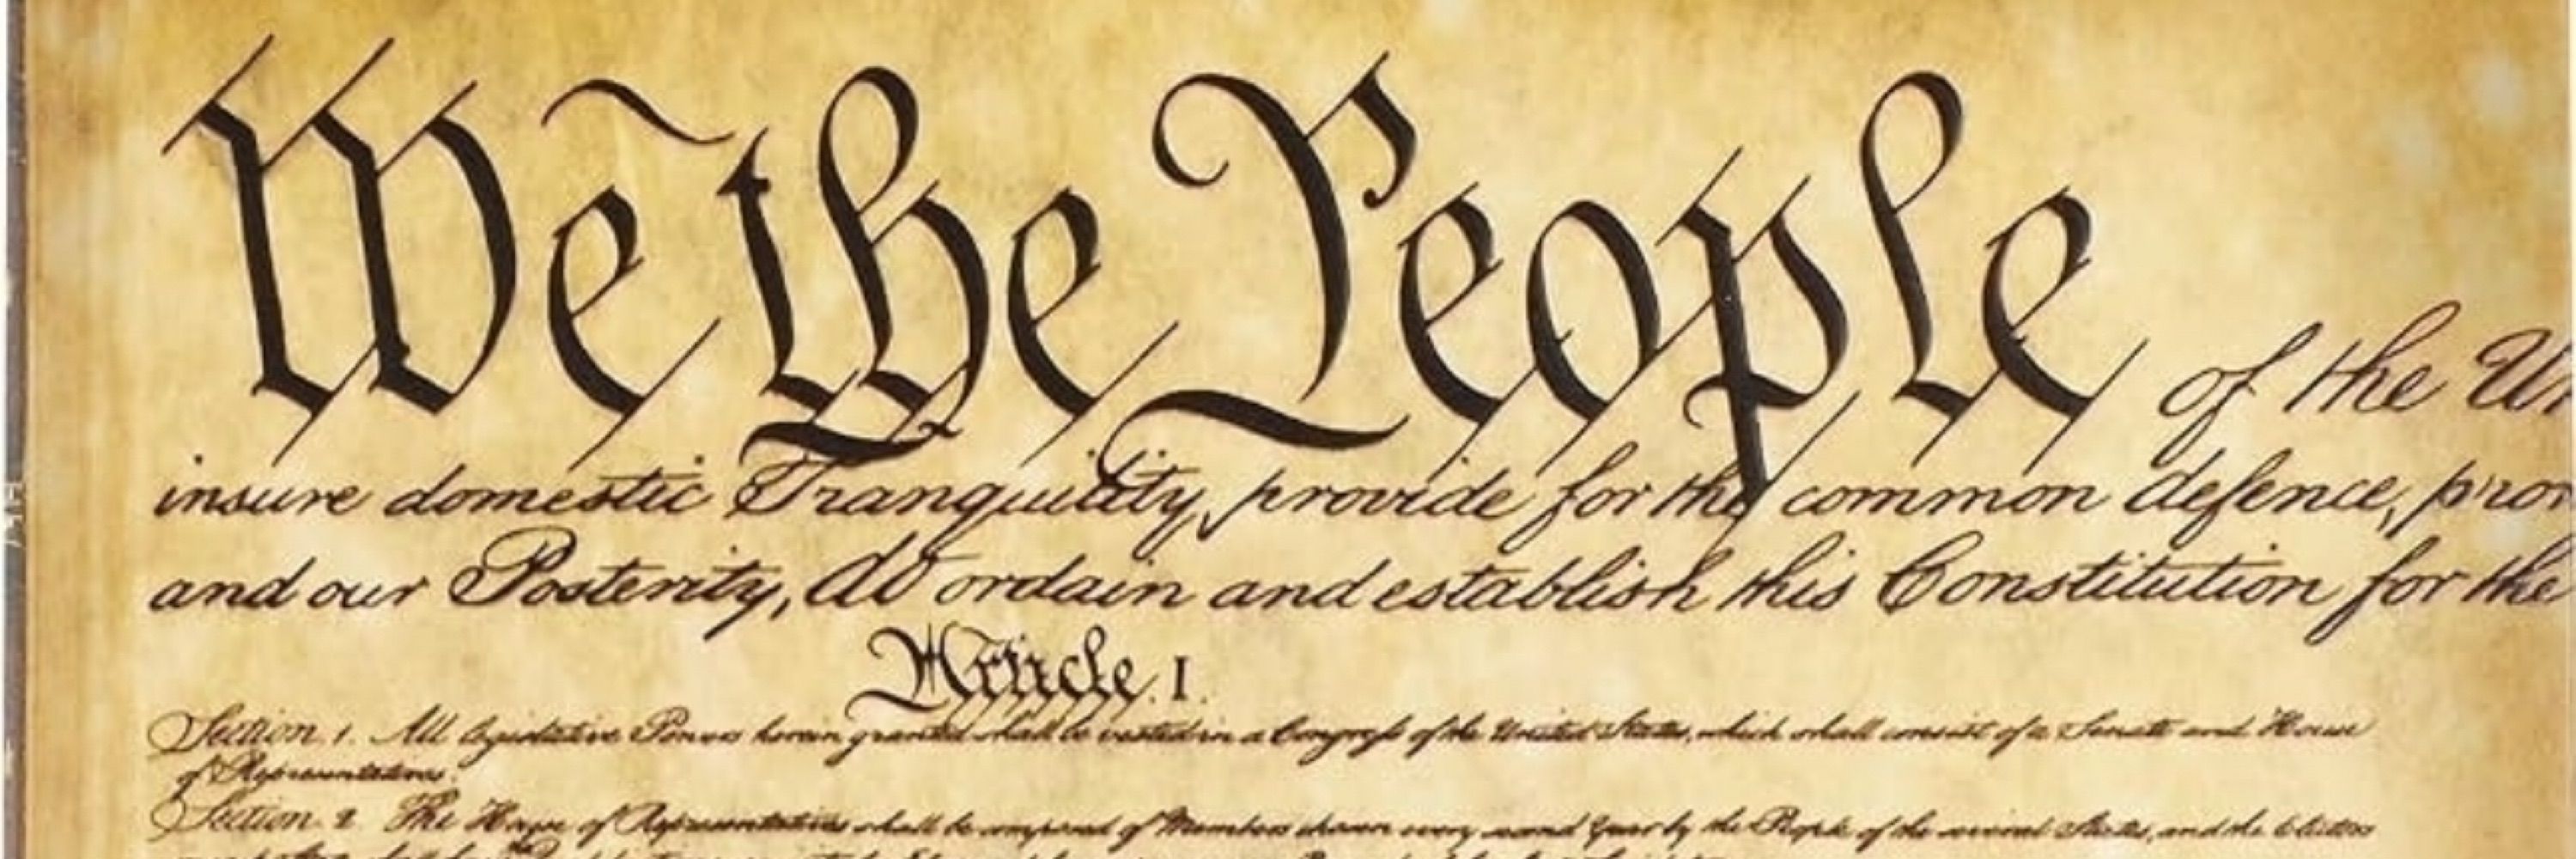 We the People of the Un
insure domestic Tranquility, provide for the common defence, prom
and our Posterity, do ordain and establish this Constitution for the
Article. I.
Section. 1. All legislative Powers herein granted shall be vested in a Congress of the United States, which shall consist of a Senate and House
of Representatives.
Section. 2. The House of Representatives shall be composed of Members chosen every second Year by the People of the several States, and the Electors